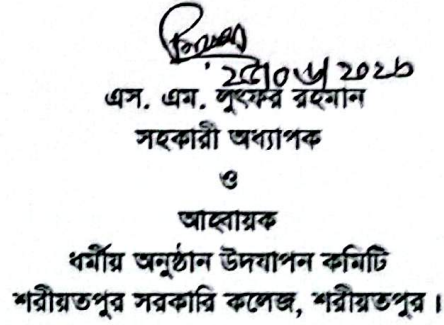 এস. এম. লুৎফর রহমান
সহকারী অধ্যাপক
ও
আহবায়ক
ধর্মীয় অনুষ্ঠান উদযাপন কমিটি
শরীয়তপুর সরকারি কলেজ, শরীয়তপুর।